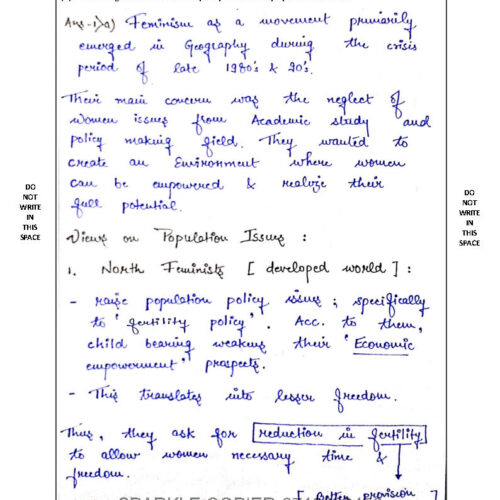 Ans-1>a) Feminism as a movement primarily
emerged in Geography during the crisis
period of late 1980's & 90's.
Their main concern was the neglect of
women issues from Academic study and
policy making field. They wanted to
create an Environment where women
can be empowered & realize their
full potential.
Views on Population Issues :
1. North Feminists [ developed world ] :
- raise population policy issues ; specifically
to 'fertility policy'. Acc. to them,
child bearing weakens their 'Economic
empowerment' prospects.
- This translates into lesser freedom.
Thus, they ask for reduction in fertility
to allow women necessary time &
freedom.
[ Better provision ]
DO
NOT
WRITE
IN
THIS
SPACE
DO
NOT
WRITE
IN
THIS
SPACE